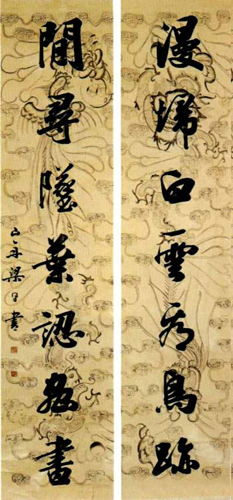 漫埽白雲看鳥跡
閒尋墜葉認蟲書
山舟梁同書